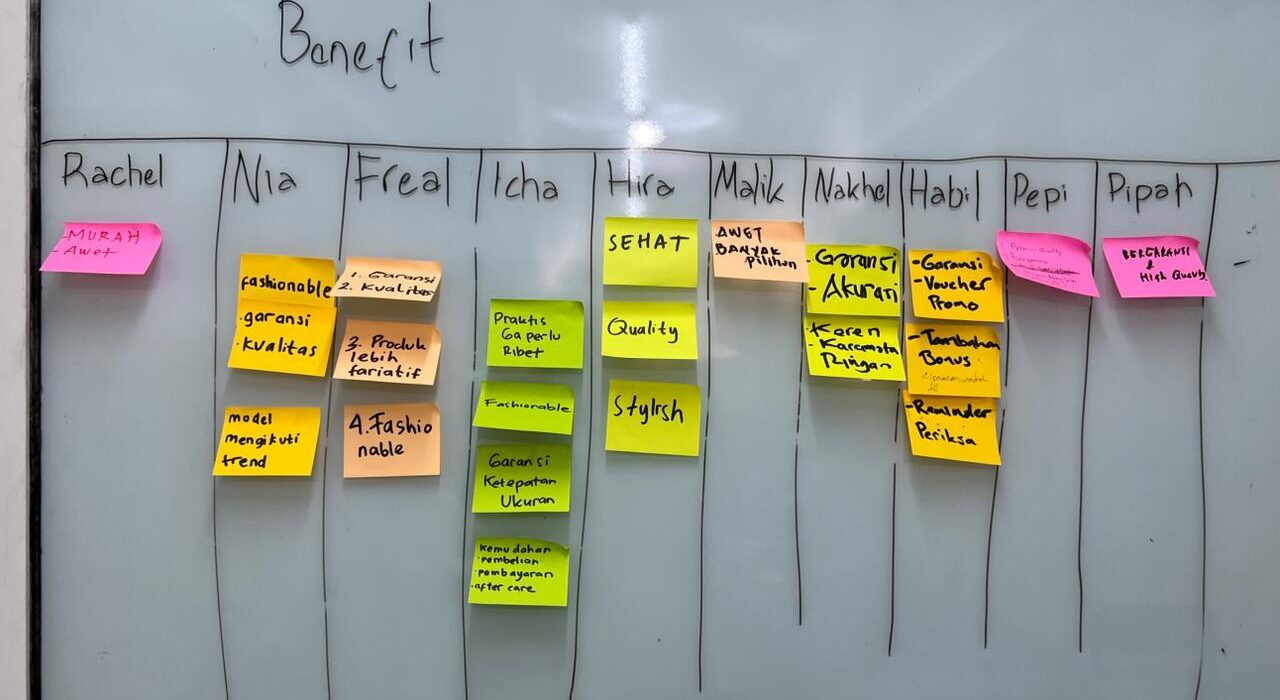 Benefit
Rachel
Nia
Freal
Icha
Hira
Malik
Nakhel
Habil
Pepi
Pipah
- MURAH
- Awet
fashionable
. garansi
. kualitas
model
mengikuti
trend
1. Garansi
2. Kualitas
3. Produk
lebih
fariatif
4. Fashio
nable
Praktis
Ga perlu
Ribet
Fashionable
Garansi
Ketepatan
Ukuran
kemudahan
. pembelian
. pembayaran
. after care
SEHAT
Quality
Stylish
. AWET
BANYAK
pilihan
- Garansi
- Akurasi
- Keren
- Karcamata
Ringan
- Garansi
- Voucher
Promo
- Tambahan
Bonus
- Reminder
Periksa
BERGARANSI
&
High Quality